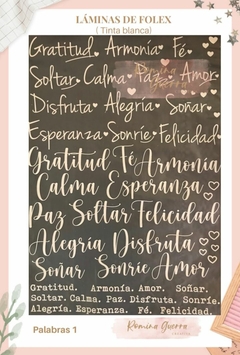 LÁMINAS DE FOLEX
( Tinta blanca)
Gratitud. Armonía. Fé.
Soltar. Calma Paz Amor
Disfruta Alegría Soñar.
Esperanza Sonríe Felicidad
Gratitud Fé Armonía
Calma Esperanza
Paz Soltar Felicidad
Alegria Disfruta
Soñar Sonríe Amor
Gratitud. Armonía. Amor. Soñar.
Soltar. Calma. Paz. Disfruta. Sonríe.
Alegría. Esperanza. Fé. Felicidad.
Palabras 1
Romina Guerra